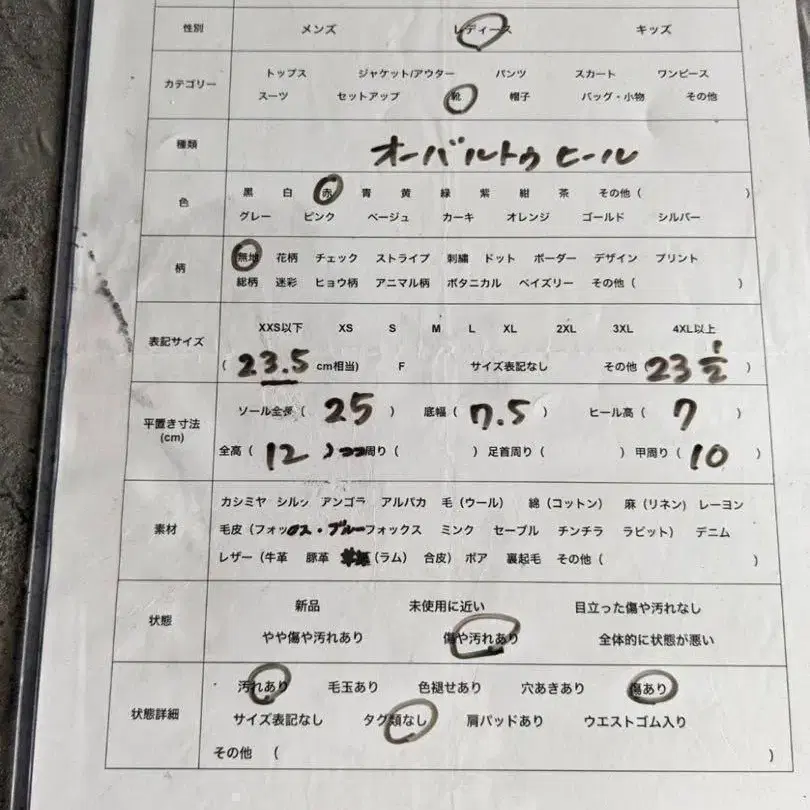 性別 メンズ レディース キッズ
カテゴリー トップス ジャケット/アウター パンツ スカート ワンピース
スーツ セットアップ 靴 帽子 バッグ・小物 その他
種類 オーバルトゥ ヒール
色 黒 白 赤 青 黄 緑 紫 紺 茶 その他 ( )
グレー ピンク ベージュ カーキ オレンジ ゴールド シルバー
柄 無地 花柄 チェック ストライプ 刺繍 ドット ボーダー デザイン プリント
総柄 迷彩 ヒョウ柄 アニマル柄 ボタニカル ペイズリー その他 ( )
表記サイズ XXS以下 XS S M L XL 2XL 3XL 4XL以上
( 23.5 cm相当) F サイズ表記なし その他 23 1/2 )
平置き寸法 (cm) ソール全長 ( 25 ) 底幅 ( 7.5 ) ヒール高 ( 7 )
全高 ( 12 ) 周り ( ) 足首周り ( ) 甲周り ( 10 )
素材 カシミヤ シルク アンゴラ アルパカ 毛 (ウール) 綿 (コットン) 麻 (リネン) レーヨン
毛皮 (フォックス・ブルーフォックス ミンク セーブル チンチラ ラビット) デニム
レザー (牛革 豚革 (ラム) 合皮) ボア 裏起毛 その他 ( )
状態 新品 未使用に近い 目立った傷や汚れなし
やや傷や汚れあり 傷や汚れあり 全体的に状態が悪い
状態詳細 汚れあり 毛玉あり 色褪せあり 穴あきあり 傷あり
サイズ表記なし タグ類なし 肩パッドあり ウエストゴム入り
その他 ( )